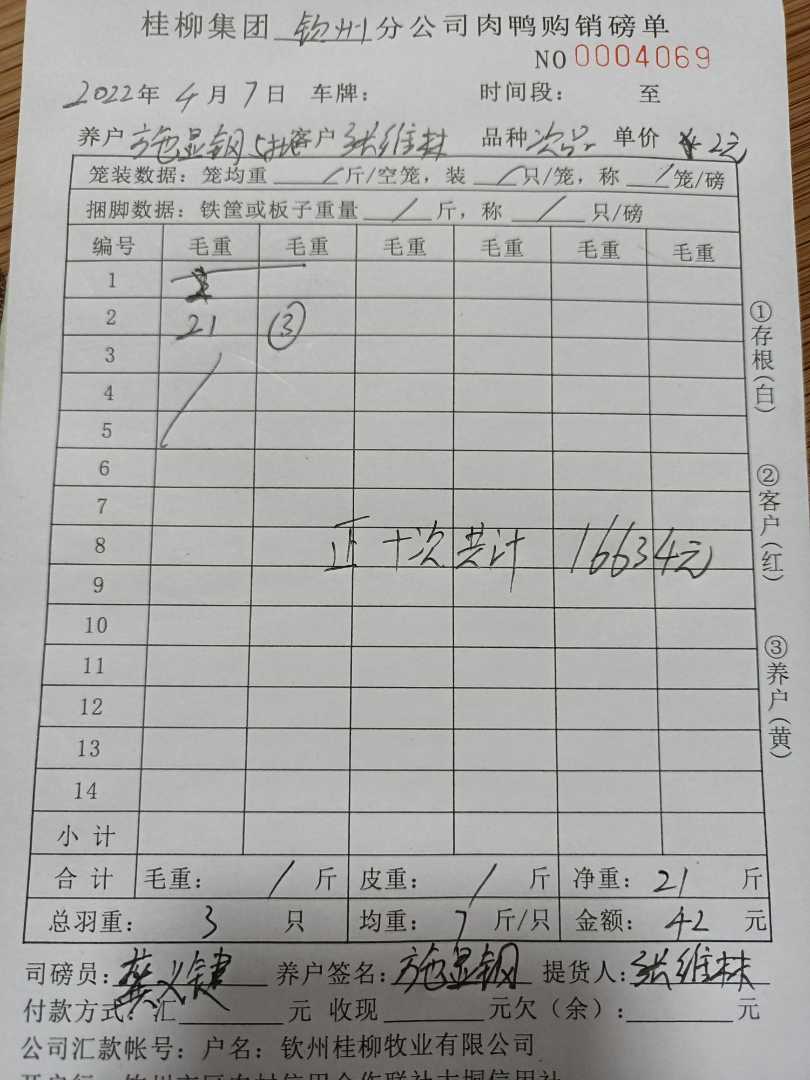 桂柳集团 钦州 分公司肉鸭购销磅单
NO 0004069
2022年 4 月 7 日 车牌： 时间段： 至
养户 施显钢 5批 客户 张维林 品种 次品 单价 2元
笼装数据：笼均重 / 斤/空笼，装 / 只/笼，称 / 笼/磅
捆脚数据：铁筐或板子重量 / 斤，称 / 只/磅
编号 毛重 毛重 毛重 毛重 毛重 毛重
1
2 21 ③
3
4
5
6
7
8 正十次共计 16634元
9
10
11
12
13
14
小 计
合 计 毛重： / 斤 皮重： / 斤 净重： 21 斤
总羽重： 3 只 均重： 7 斤/只 金额： 42 元
司磅员：龚义键 养户签名：施显钢 提货人：张维林
付款方式：汇 元 收现 元欠（余）： 元
公司汇款帐号：户名：钦州桂柳牧业有限公司
①存根（白）
②客户（红）
③养户（黄）